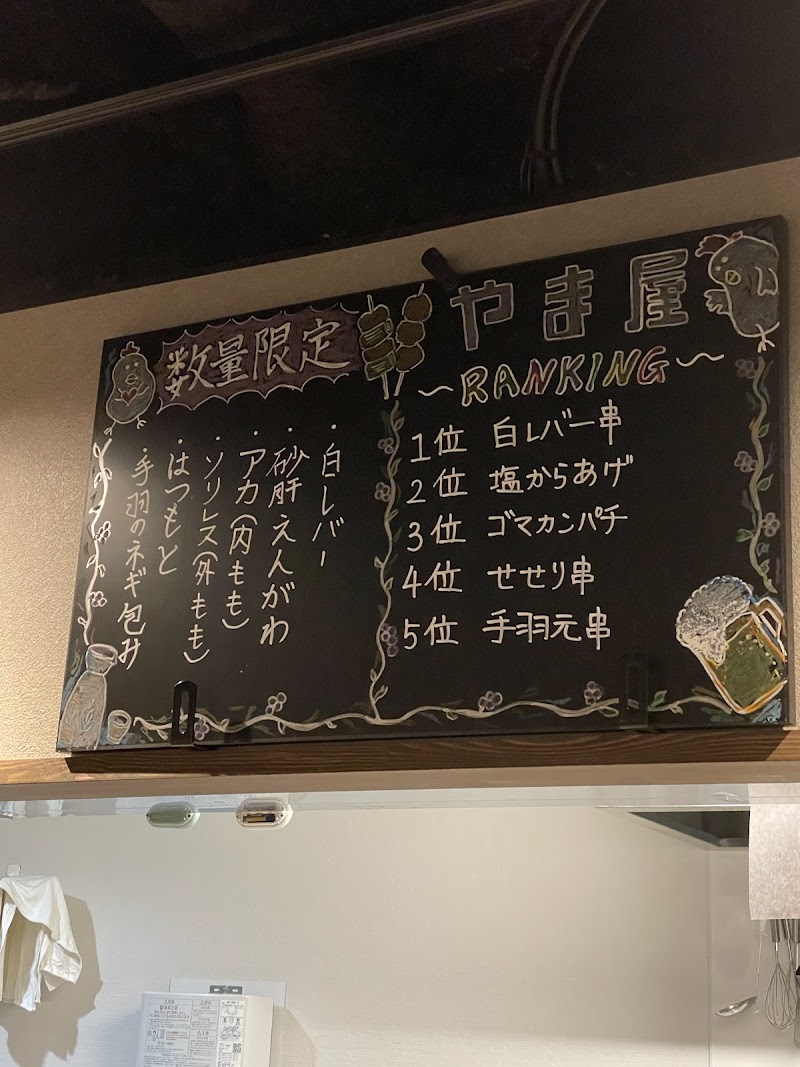 数量限定
・白レバー
・砂肝えんがわ
・アカ(内もも)
・ソリレス(外もも)
・はつもと
・手羽のネギ包み
やま屋
～RANKING～
1位 白レバー串
2位 塩からあげ
3位 ゴマカンパチ
4位 せせり串
5位 手羽元串